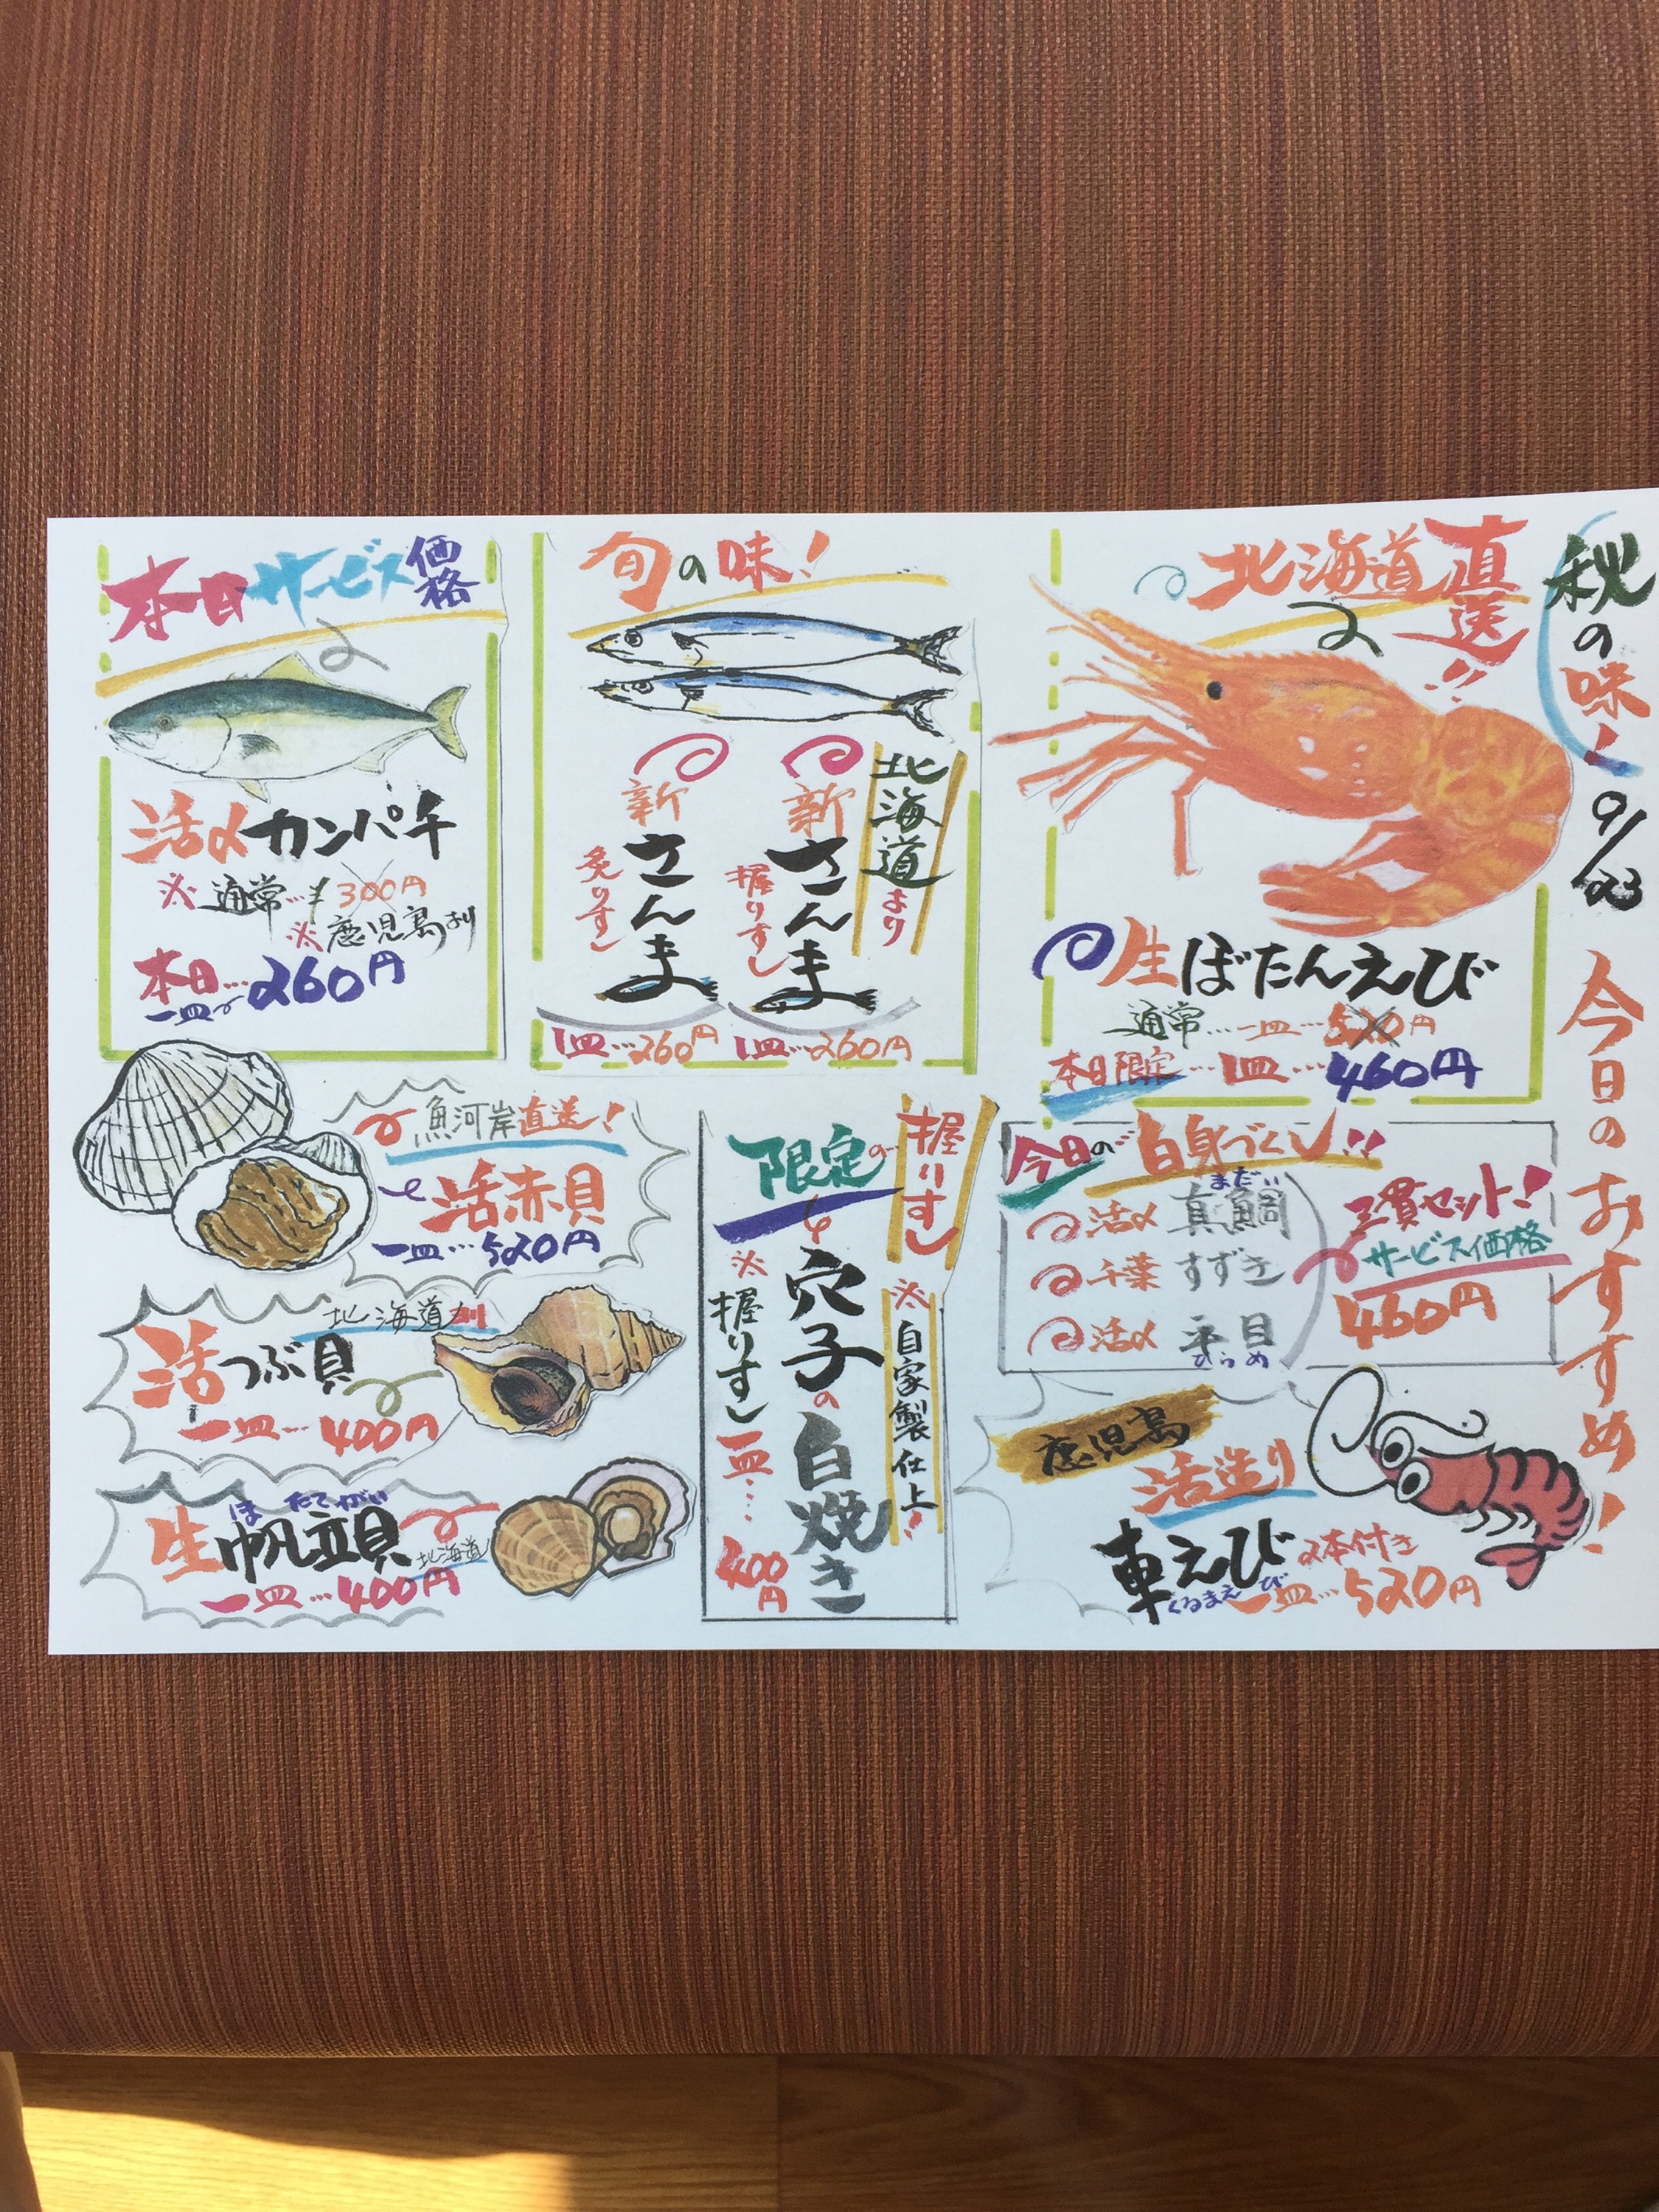 秋の味！
9/23
今日のおすすめ！
北海道直送!!
生ぼたんえび
通常…一皿…520円
本日限定…1皿…460円
旬の味！
北海道より
新さんま
握りずし
1皿…260円
新さんま
炙りずし
1皿…260円
本日サービス価格
活〆カンパチ
※通常…¥300円
※鹿児島より
本日…
一皿 260円
今日の白身づくし!!
活〆 真鯛
まだい
千葉 すずき
活〆 平目
ひらめ
三貫セット！
サービス価格
460円
鹿児島
活造り
車えび 2本付き
くるまえび
一皿…520円
限定の握りずし
※自家製仕上！
穴子の白焼き
※握りずし一皿…400円
魚河岸直送！
活赤貝
一皿…520円
北海道産
活つぶ貝
一皿…400円
ほたてがい
生帆立貝 北海道
一皿…400円